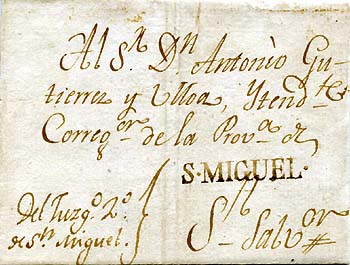 Al Sr. Dn Antonio Gu-
tierrez y Ulloa, Ytendte
Corregor de la Prova de
S·MIGUEL·
Del Juzgo 2o
de Sn Miguel.
Sn Salvor